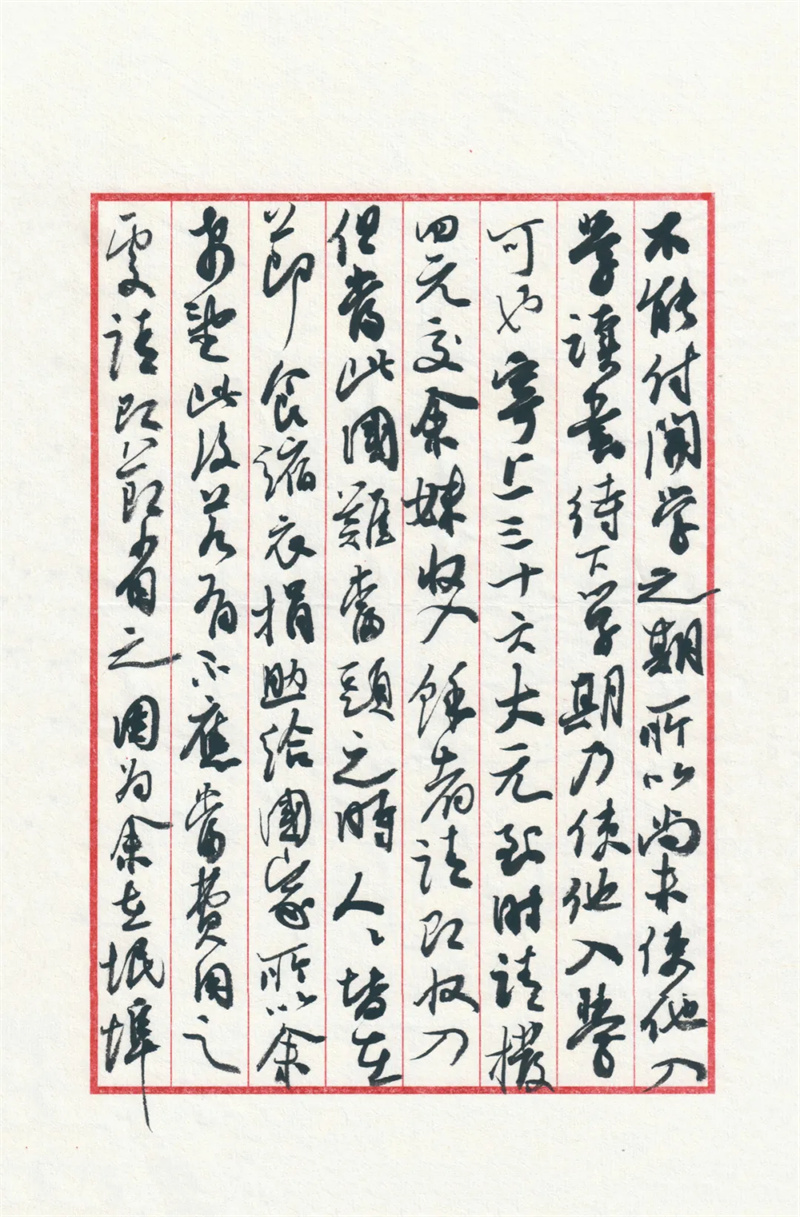 不能付開学之期所以尚未使他入
学讀書待下学期乃使他入學
可也寄上三十六大元到时請撥
四元交余妹收入餘者請即收入
但當此國難當頭之時人人皆在
節食縮衣捐助給國家所以余
希望此後若有不應當費用之
處請即節省之因為余在岷埠